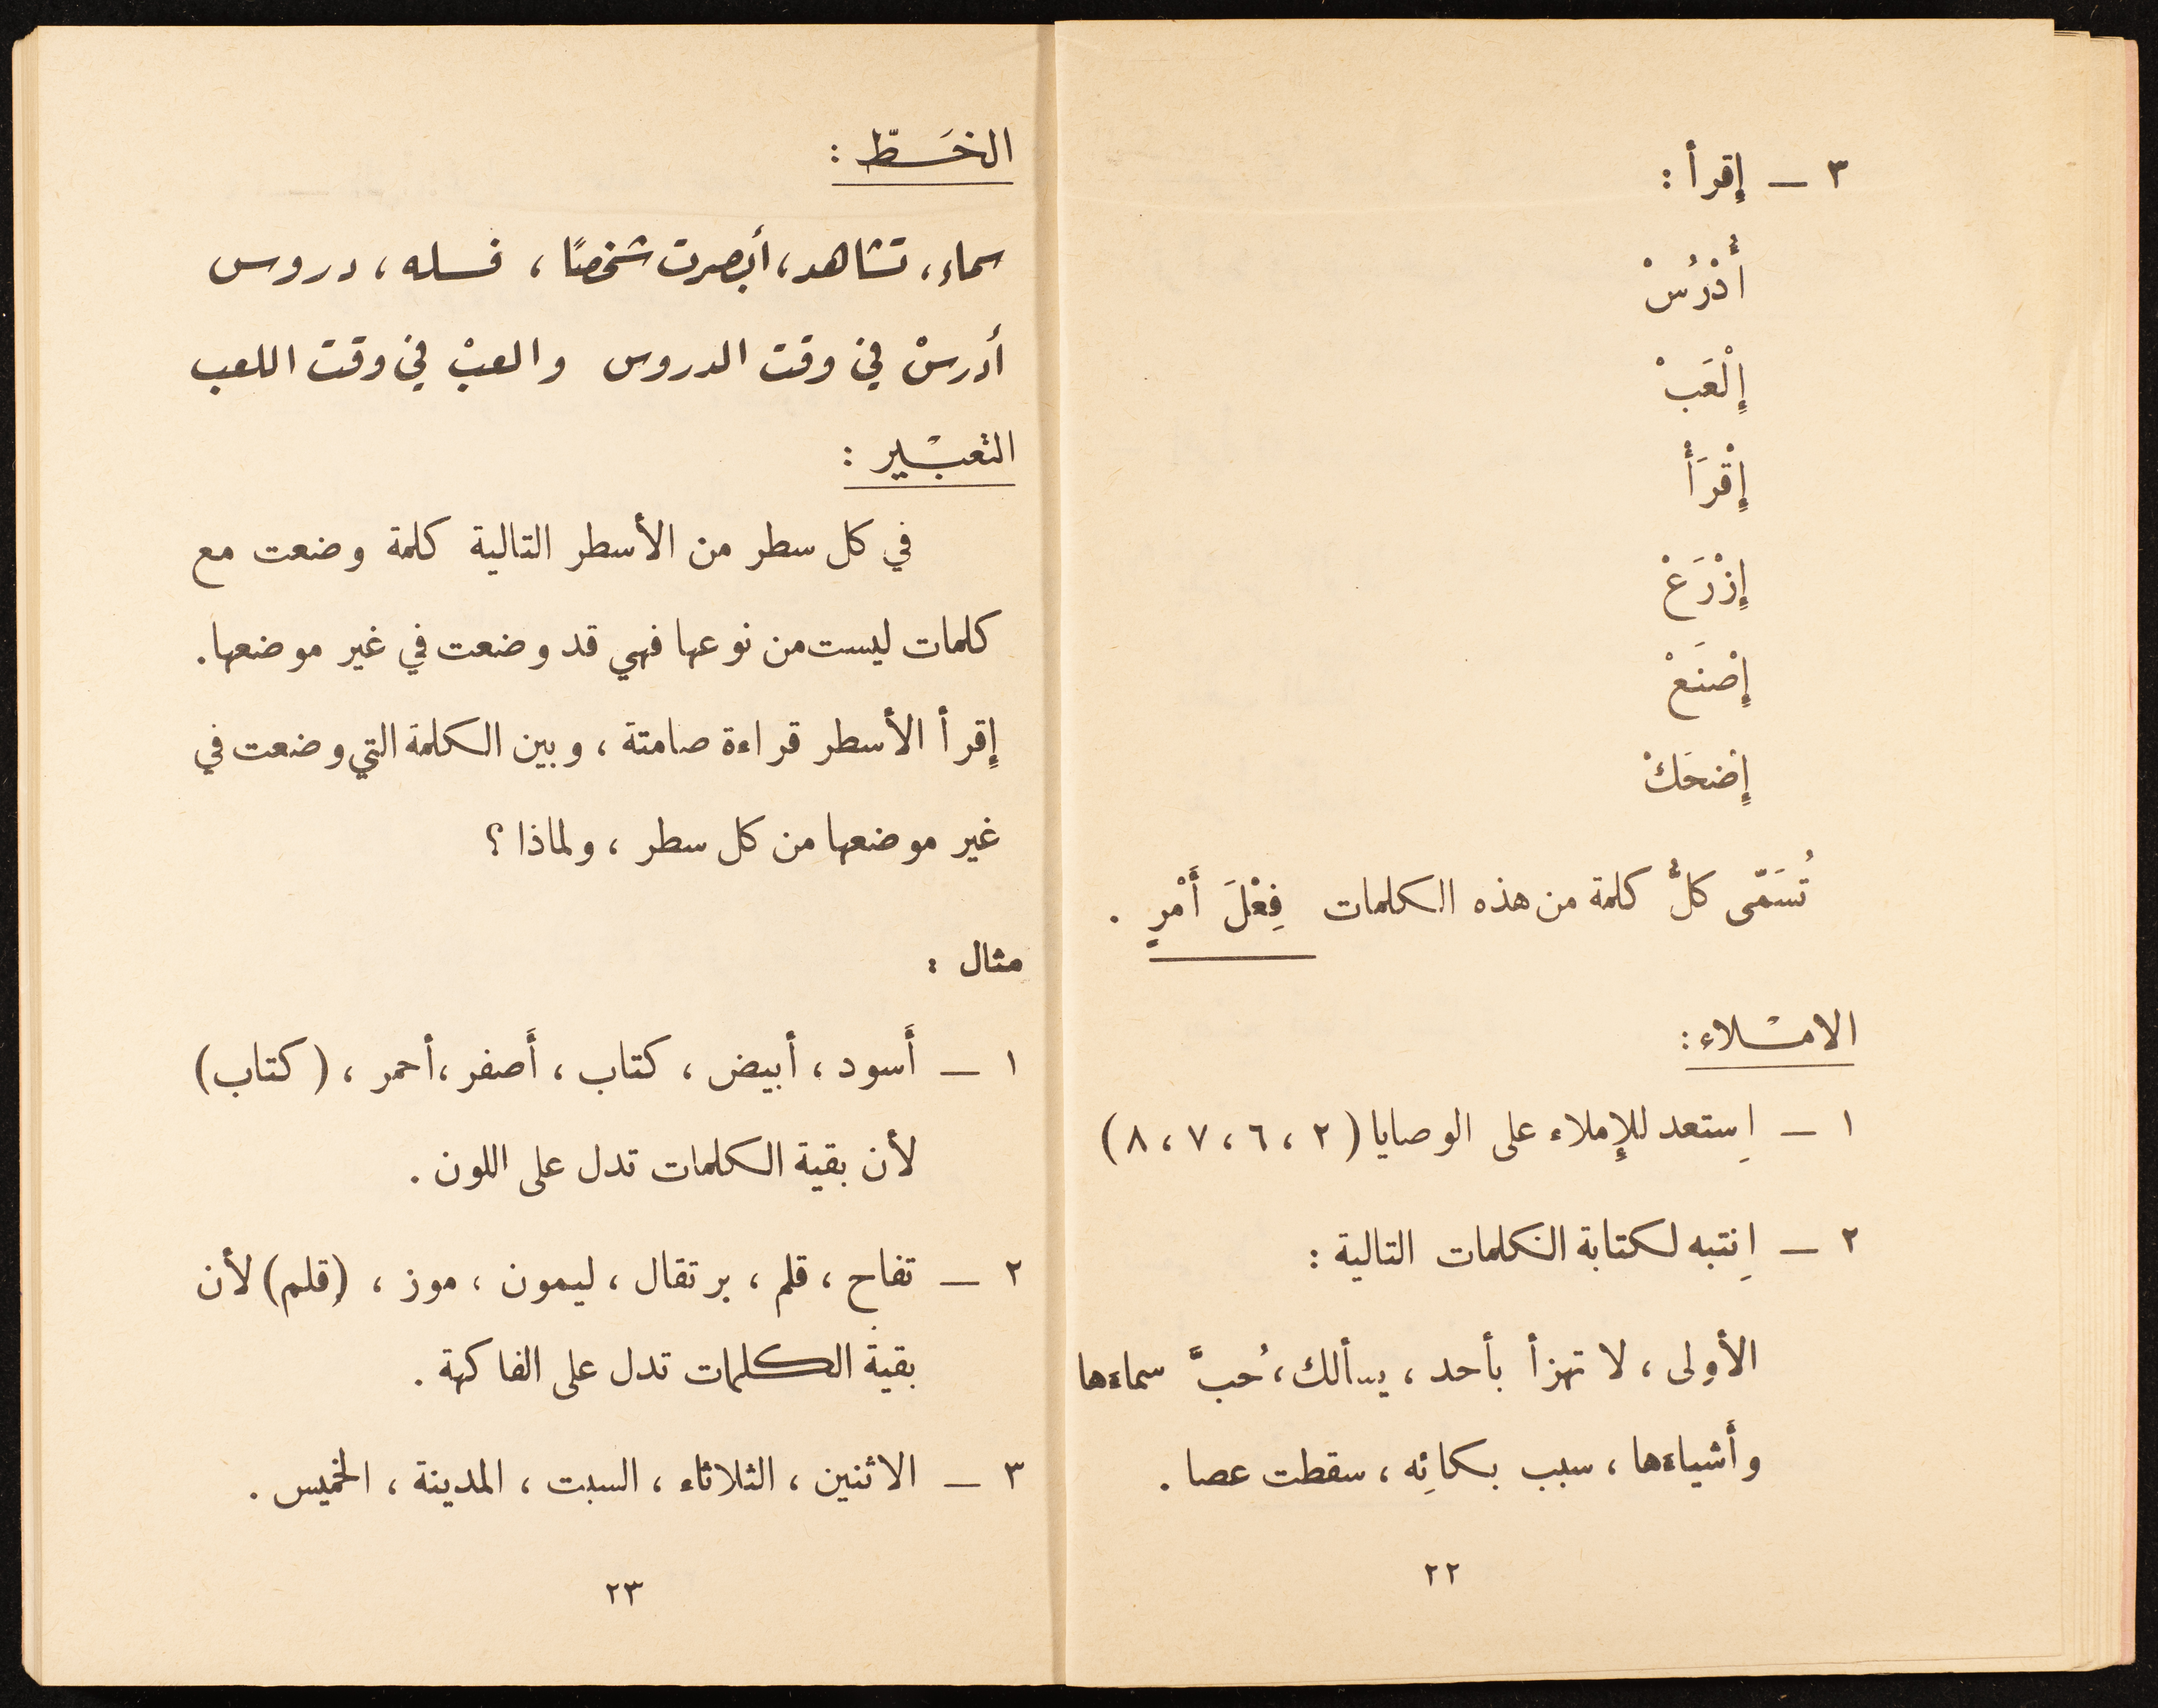 ٣ ــ إِقرأ :
أُدْرُسْ
إِلْعَبْ
إِقْرَأْ
إِزْرَعْ
إِصْنَعْ
إِضحَكْ
تُسَمّى كلُّ كلمة من هذه الكلمات فِعْلَ أَمْرٍ .
الامْــلاء :
١ ــ اِستعد للإِملاء على الوصايا (٢ ، ٦ ، ٧ ، ٨)
٢ ــ اِنتبه لكتابة الكلمات التالية :
الأولى ، لا تهزأ بأحد ، يسألك ، حُبَّ سماءها
وأَشياءها ، سبب بكائِه ، سقطت عصا .
٢٢
الخَــطّ :
سماء ، تشاهد ، أبصرت شخصًا ، فسله ، دروس
أدرسْ في وقت الدروس والعبْ في وقت اللعب
التعبْــير :
في كل سطر من الأسطر التالية كلمة وضعت مع
كلمات ليست من نوعها فهي قد وضعت في غير موضعها .
إِقرأ الأسطر قراءة صامتة ، وبين الكلمة التي وضعت في
غير موضعها من كل سطر ، ولماذا ؟
مثال :
١ ــ أَسود ، أبيض ، كتاب ، أَصفر ، أحمر ، (كتاب)
لأن بقية الكلمات تدل على اللون .
٢ ــ تفاح ، قلم ، برتقال ، ليمون ، موز ، (قلم) لأن
بقية الكلمات تدل على الفاكهة .
٣ ــ الاثنين ، الثلاثاء ، السبت ، المدينة ، الخميس .
٢٣